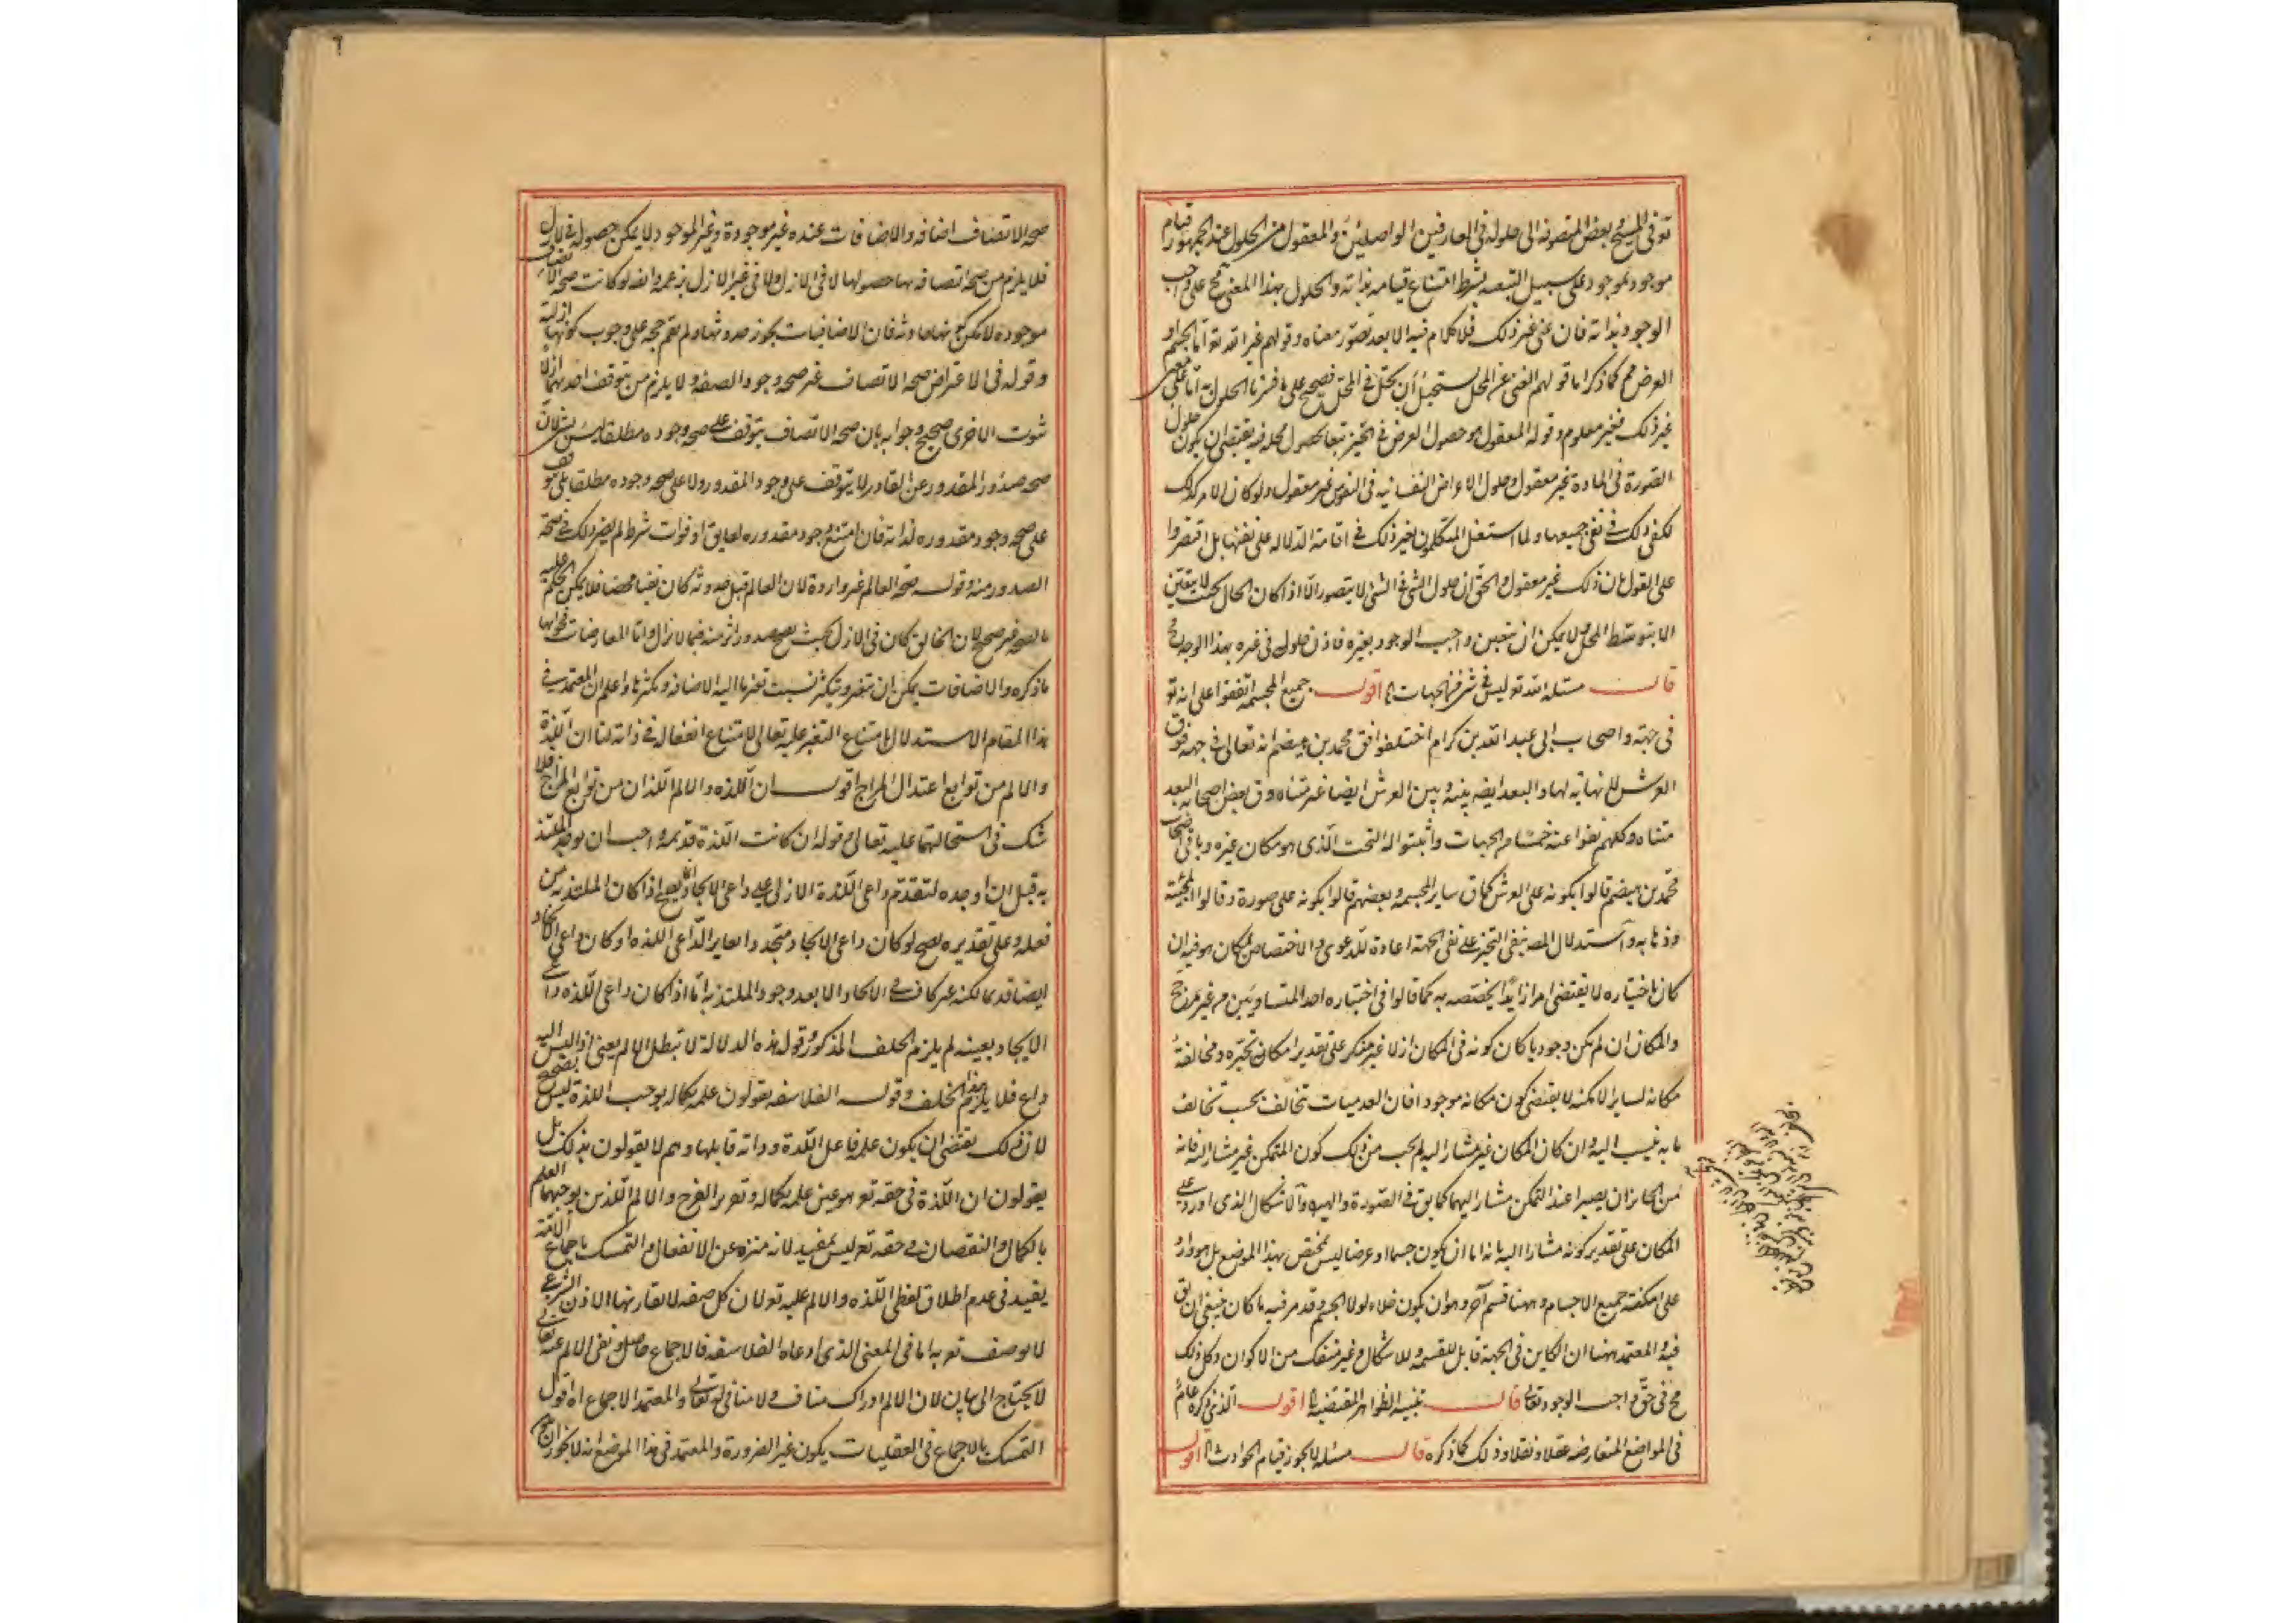 تو فى المسيح وبعض المتصوفه الى حلوله فى العارفين الواصلين والمعقول من الحلول عند الجمهور قيام
موجود بموجود على سبيل التبعيه بشرط امتناع قيامه بذاته والحلول بهذا المعنى مح على واجب
الوجود بذاته فان عنى غير ذلك فلا كلام فيه الا بعد تصور معناه وقولهم غير الله تع اما الجسم او
العرض مم كما ذكر اما قولهم الغنى عن المحل يستحيل ان يحل فى المحل فصحيح على ما فسرنا الحلول به اما على معنى
غير ذلك فغير معلوم وقوله المعقول هو حصول العرض فى الحيز تبعا لحصول محله فيه يقتضى ان يكون حلول
الصورة فى المادة غير معقول وحلول الاعراض النفسانيه فى النفوس غير معقول ولو كان الامر كذلك
لكفى ذلك فى نفى جميعها ولما استغل المتكلمون بغير ذلك فى اقامة الدلاله على نفيها بل اقتصروا
على القول بان ذلك غير معقول والحق ان حلول الشئ فى الشئ لا يتصور الا اذا كان الحال بحيث لا يتعين
الا بتوسط المحل ولا يمكن ان يتعين واجب الوجود بغيره فاذن حلوله فى غيره بهذا الوجه مح
قال مسئله الله تع ليس فى شئ من الجهات اقول جميع المجسمه اتفقوا على انه تع
فى جهته واصحاب ابى عبد الله بن كرام اختلفوا فق محمد بن هيضم انه تعالى فى جهة فوق
العرش لا نهاية لها والبعد بينه وبين العرش ايضا غير متناه وق بعض اصحابه البعد
متناه وكلهم نفوا عنه خمسا من الجهات واثبتوا له التحت الذى هو مكان غيره وباقى اصحاب
محمد بن هيضم قالوا بكونه على العرش كما ق سائر المجسمه وبعضهم قالوا بكونه على صورة وقالوا بمجيئه
وذهابه واستدلال المص بنفى التحيز على نفى الجهة اعادة للدعوى والاختصاص بالمكان هو فيه ان
كان باختياره لا يقتضى امرا زايدا يخصصه به كما قالوا فى اختياره احد المتساويين من غير مرجح
والمكان ان لم يكن وجوديا كان كونه فى المكان ازلا غير منكر على تقدير امكان تحيزه ومخالفة
مكانه لسائر الامكنه لا يقتضى كون مكانه موجودا فان العدميات تخالف بحسب تخالف
ما ينسب اليه وان كان المكان غير مشار اليه لم يجب من ذلك كون المتمكن غير مشار اليه فانه
من الجائز ان يصيرا عند التمكن مشارا اليهما كما يق فى الصورة والهيولى والاشكال الذى اورد على
المكان على تقدير كونه مشارا اليه بانه اما ان يكون جسما او عرضا ليس بمختص بهذا الموضع بل هو وارد
على امكنة جميع الاجسام وههنا قسم آخر وهو ان يكون خلاء لولا الجسم وقد مر فيه ما كان ينبغى ان يق
فيه والمعتمد ههنا ان الكاين فى الجهة قابل للقسمه وللاشكال وغير منفك من الاكوان وكل ذلك
مح فى حق واجب الوجود تعالى قال تنبيه الظواهر المقتضيه اقول الذى ذكره عام
فى المواضع المتعارضه عقلا ونقلا وذلك كما ذكره قال مسئله لا يجوز قيام الحوادث اقول
صحه الاتصاف اضافه والاضافات عنده غير موجودة وغير الموجود لا يمكن حصوله فى الازل
فلا يلزم من صحه اتصافه بها حصولها لا فى الازل ولا فى غير الازل بزعمه وانه لو كانت صحه الاتصاف
موجوده لا يمكن فان الاضافيات يجوز حدوثها ولم تقم حجه على وجوب كونها ازلية
وقوله فى الاعتراض صحه الاتصاف غير صحه وجود الصفه ولا يلزم من توقف احديهما ازلا
ثبوت الاخرى صحيح وجوابه بان صحه الاتصاف يتوقف على صحه وجوده مطلقا ليس بشئ لان
صحه صدور المقدور عن القادر لا يتوقف على وجود المقدور ولا على صحه وجوده مطلقا بل يتوقف
على صحه وجود مقدوره لذاته فان امتنع وجود مقدوره لعايق او فوات شرط لم يضر ذلك فى صحة
الصدور منه وقوله صحه العالم غير واردة لان العالم قبل حدوثه كان نفيا محضا فلا يمكن الحكم عليه
بالصحه غير صحيح لان الخالق كان فى الازل بحيث يصح صدور اثر منه فيما لا يزال واما المعارضات فجوابها
ما ذكره والاضافات يمكن ان تتغير وتتكثر بسبب تغير ما اليه الاضافه وتكثرها واعلم ان المعتمد فى
هذا المقام الاستدلال بامتناع التغير عليه تعالى لامتناع انفعاله فى ذاته لنا ان اللذة
والالم من توابع اعتدال المزاج اقول ان اللذه والالم اللذان من توابع المزاج فلا
شك فى استحالتهما عليه تعالى وقوله ان كانت اللذة قديمه واجب ان يوجد الملتذ
به قبل ان اوجده لتقدم داعى اللذة الازلى على داعى الايجاد انما يصح اذا كان الملتذ به من
فعله وعلى تقديره يصح لو كان داعى الايجاد متجددا مغايرا لداعى اللذه او كان داعى الايجاد
ايضا قديما لكنه غير كاف فى الايجاد الا بعد وجود الملتذ به اما اذا كان داعى اللذه داعى
الايجاد بعينه لم يلزم الخلف المذكور وقوله هذه الدلالة لا تبطل الالم يعنى اذ ليس اليه
داع فلا يلزم هذا الخلف وقوله الفلاسفه يقولون علمه بكماله يوجب اللذة ليس بصحيح
لان ذلك يقتضى ان يكون علمه فاعل اللذة وذاته قابلها وهم لا يقولون بذلك بل
يقولون ان اللذة فى حقه تع هو عين علمه بكماله وتعرير الفرح والالم اللذين يوجبهما العلم
بالكمال والنقصان فى حقه تع ليس بمفيد لانه منزه عن الانفعال والتمسك باجماع الامة
يفيد فى عدم اطلاق لفظى اللذه والالم عليه تع لان كل صفه لا يقارنها الاذن الشرعى
لا يوصف تع به اما فى المعنى الذى ادعاه الفلاسفه فالاجماع حاصل ونفى الالم عنه تعالى
لا يحتاج الى بيان لان الالم ادراك مناف ولا منافى له تعالى والمعتمد الاجماع اه اقول
التمسك بالاجماع فى العقليات يكون غير الضرورة والمعتمد فى هذا الموضع انه لا يجوز ان